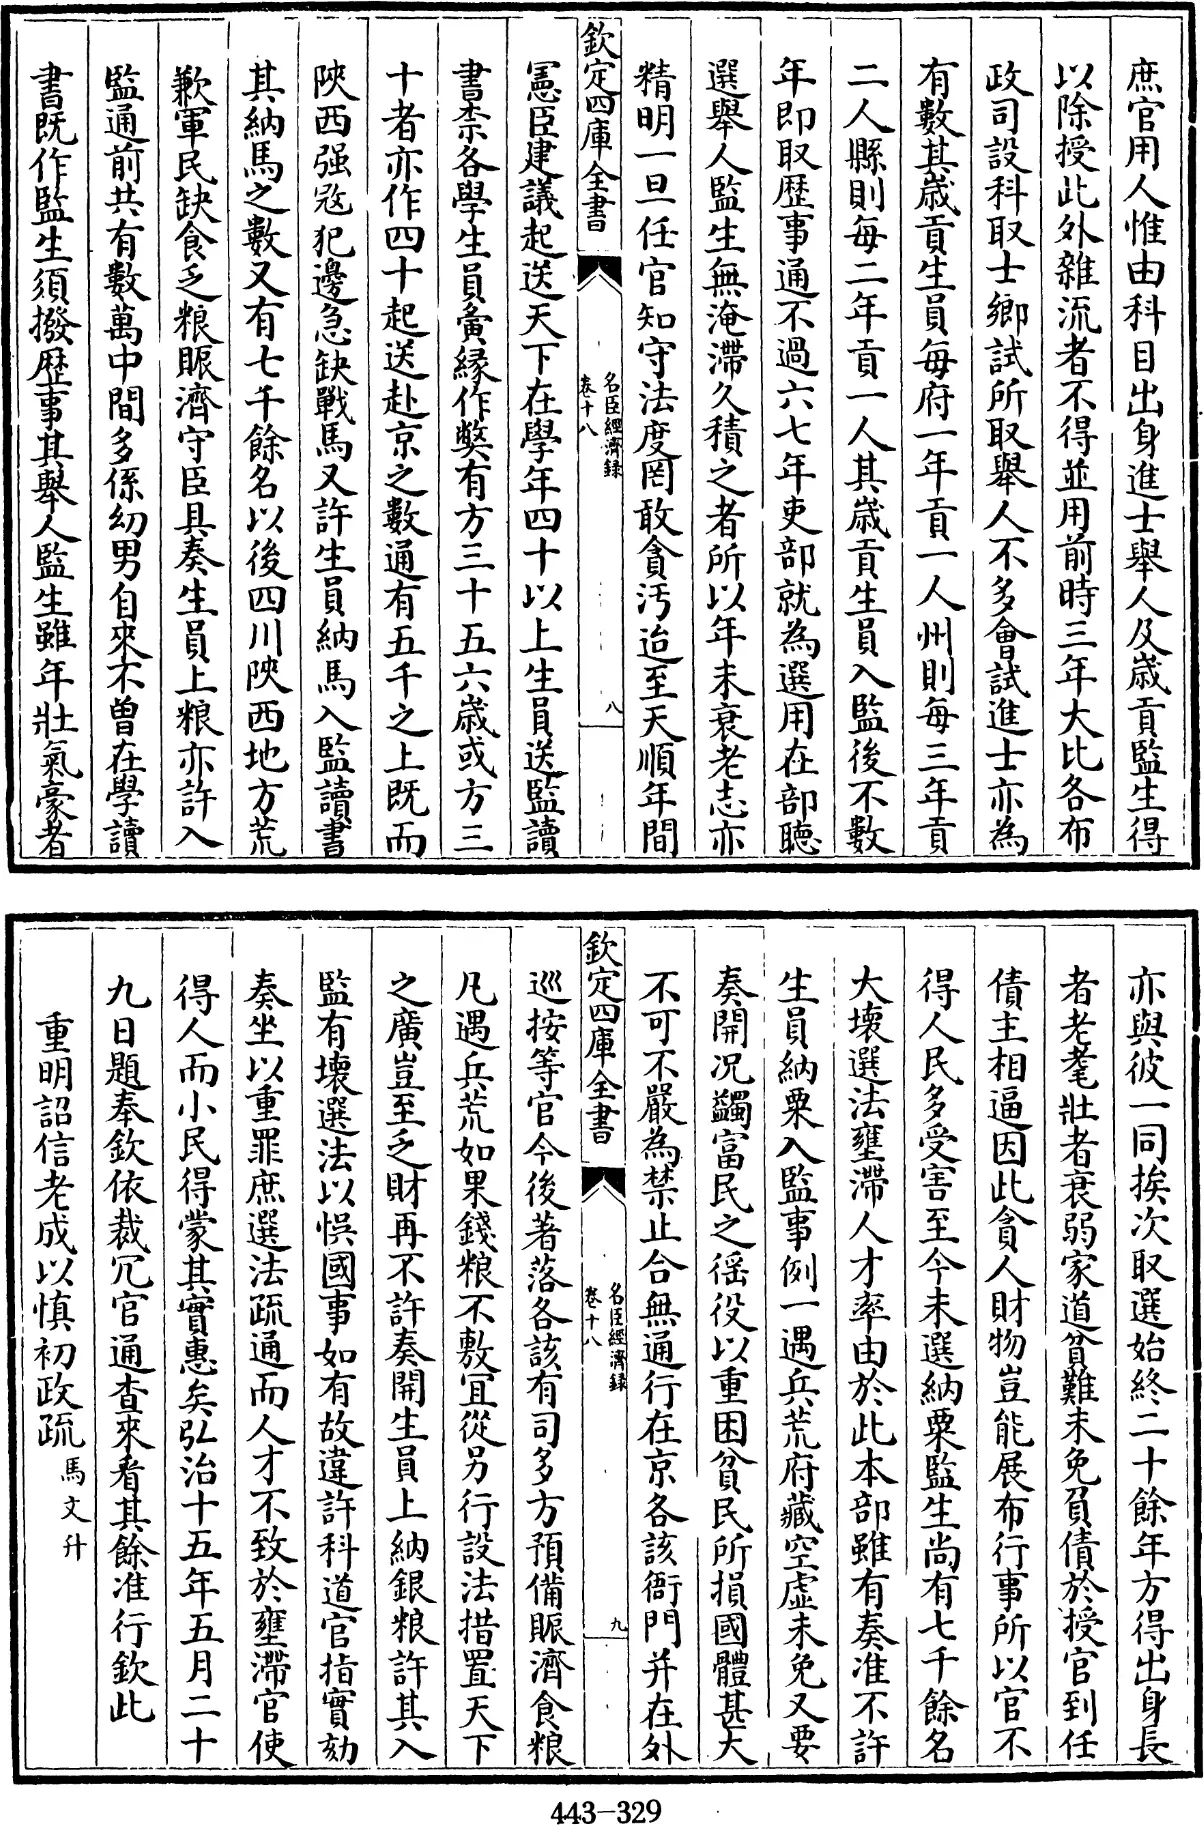 庶官用人惟由科目出身進士舉人及歳貢監生得
以除授此外雜流者不得並用前時三年大比各布
政司設科取士鄉試所取舉人不多會試進士亦為
有數其歳貢生員每府一年貢一人州則每三年貢
二人縣則每二年貢一人其歳貢生員入監後不數
年即取歴事通不過六七年吏部就為選用在部聴
選舉人監生無淹滯久積之者所以年未衰老志亦
精明一旦任官知守法度罔敢貪汚迨至天順年間
欽定四庫全書
名臣經濟録
卷十八
八
憲臣建議起送天下在學年四十以上生員送監讀
書柰各學生員夤縁作獘有方三十五六歳或方三
十者亦作四十起送赴京之數通有五千之上既而
陜西强冦犯邊急缺戰馬又許生員納馬入監讀書
其納馬之數又有七千餘名以後四川陜西地方荒
歉軍民缺食乏粮賑濟守臣具奏生員上粮亦許入
監通前共有數萬中間多係幼男自來不曽在學讀
書既作監生須撥歴事其舉人監生雖年壯氣豪者
亦與彼一同挨次取選始終二十餘年方得出身長
者老耄壯者衰弱家道貧難未免負債於授官到任
債主相逼因此貪人財物豈能展布行事所以官不
得人民多受害至今未選納粟監生尚有七千餘名
大壞選法壅滯人才率由於此本部雖有奏准不許
生員納粟入監事例一遇兵荒府藏空虚未免又要
奏開况蠲富民之徭役以重困貧民所損國體甚大
不可不嚴為禁止合無通行在京各該衙門并在外
欽定四庫全書
名臣經濟録
卷十八
九
巡按等官今後著落各該有司多方預備賑濟食粮
凡遇兵荒如果錢粮不敷冝從另行設法措置天下
之廣豈至乏財再不許奏開生員上納銀粮許其入
監有壞選法以悞國事如有故違許科道官指實劾
奏坐以重罪庶選法疏通而人才不致於壅滯官使
得人而小民得蒙其實惠矣弘治十五年五月二十
九日題奉欽依裁冗官通查來看其餘准行欽此
重明詔信老成以慎初政疏 馬文升
443-329